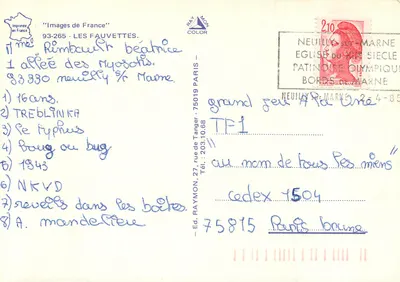 "Images de France"
93-265 - LES FAUVETTES.
Mme Rimbault béatrice
1 allée des Myosotis
93330 neuilly s/ Marne
1) 16 ans.
2) TREBLINKA
3) le typhus
4) Boug ou bug
5) 1943
6) NKVD
7) reveils dans les boites.
8) A. mandelieu
COLOR
Éd. RAYMON, 27, rue de Tanger - 75019 PARIS -
Tél. : 203.10.68
2,10
NEUILLY sur MARNE
EGLISE du XIIe SIECLE
PATINOIRE OLYMPIQUE
BORDS de MARNE
grand jeu A la Une
TF1
"au nom de tous les miens"
cedex 1504
75815 Paris brune